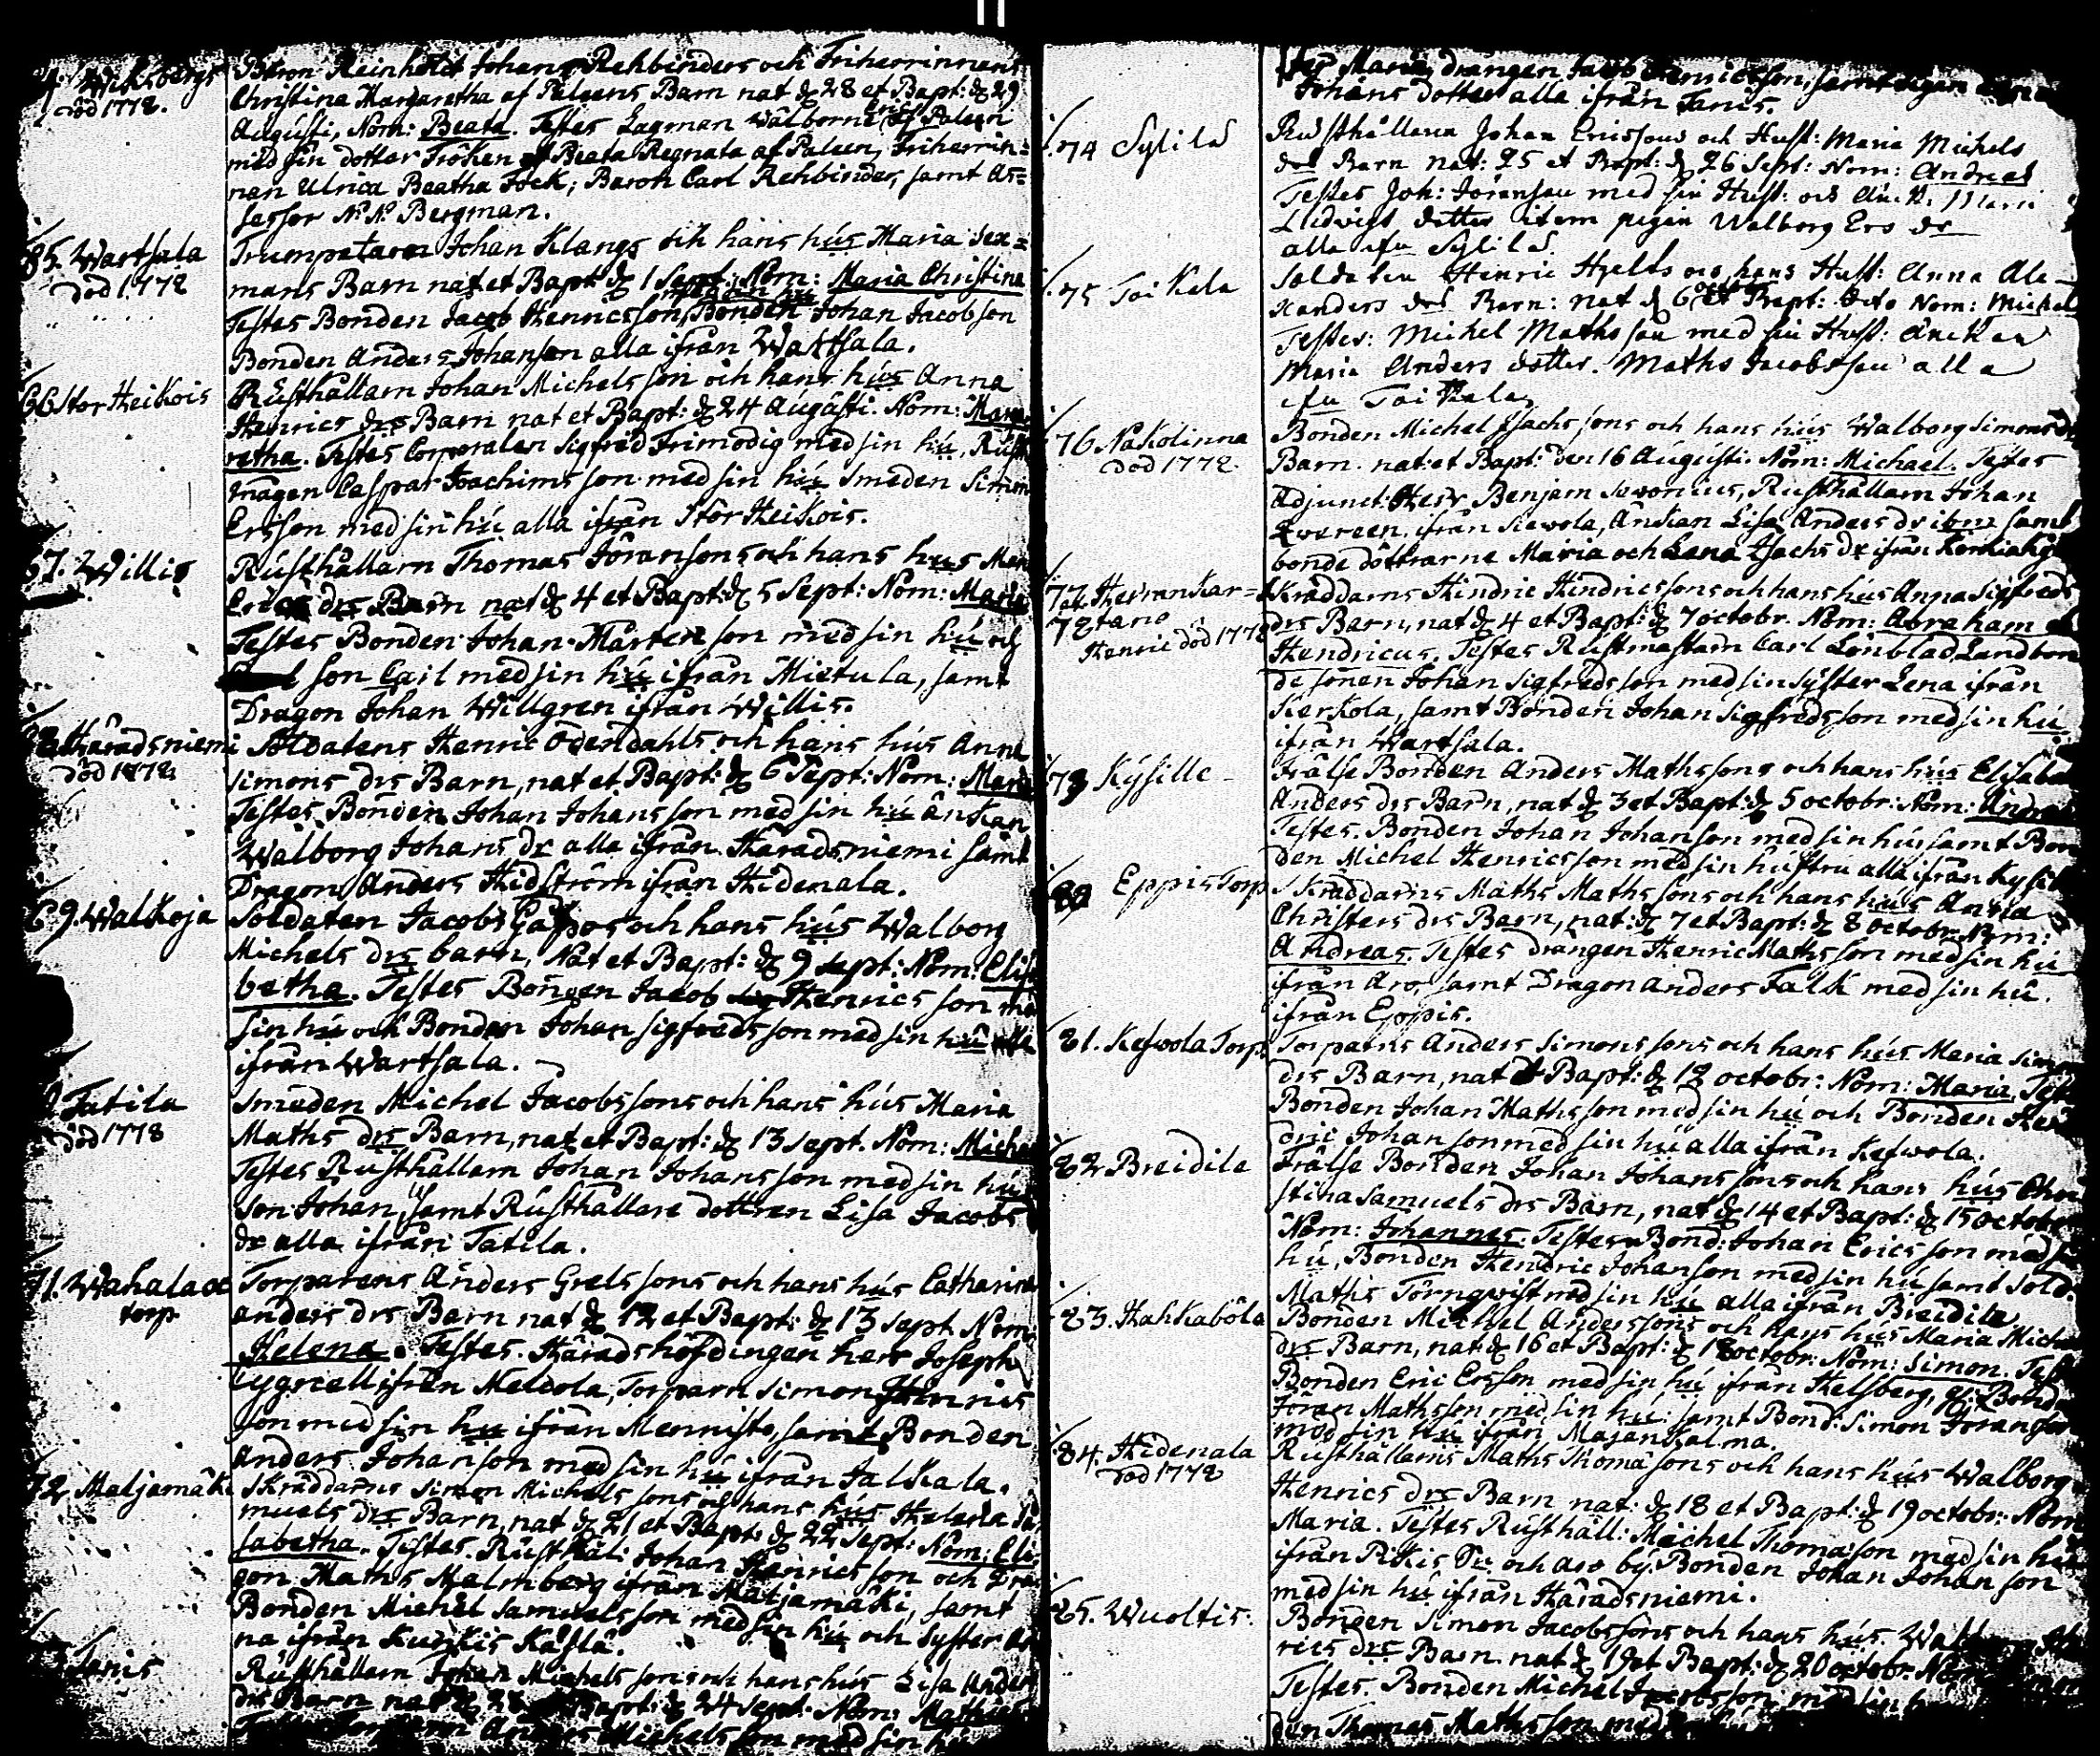 Wiksbergs
död 1778.
Baron Reinholdt Johan Rehbinders och Friherrinnens
Christina Margaretha af Paleens Barn nat d 28 et Bapt: d 29
Augusti, Nom: Beata. Testes Lagman Wälborne af Paleen
med sin dotter Fröken Beata Regnata af Paleen, Friherrin=
nan Ulrica Beatha Fock; Baron Carl Rehbinder, samt As=
sessor N. N. Bergman.
65. Wartsala
död 1778
Trumpetaren Johan Klangs och hans hus Maria Sex=
mans Barn nat et Bapt d 1 Sept: Nom: Maria Christina
Testes Bonden Jacob Henricsson, Bonden Johan Jacobson
Bonden Anders Johanson alla ifrån Wartsala.
66 Stor Heikois
Rusthållarn Johan Michelsson och hans hus Anna
Henrics drs Barn nat et Bapt: d 24 Augusti. Nom: Marga
retha. Testes Corporalen Sigfred Frimodig med sin hu, Rust
mågen Caspar Joachimsson med sin hu Smeden Simon
Ersson med sin hu alla ifrån Stor Heikois.
67. Willis
Rusthållarn Thomas Jöransons och hans hus Mar
Erics drs Barn nat d 4 et Bapt: d 5 Sept: Nom: Maria
Testes Bonden Johan Mårtenson med sin hu och
son Carl med sin hu ifrån Hietula, samt
Dragon Johan Willgren ifrån Willis.
68. Häradsniemi
död 1778
Soldatens Henric Odendahls och hans hus Anna
Simons drs Barn, nat et Bapt: d 6 Sept: Nom: Maria
Testes Bonden Johan Johansson med sin hu änkan
Walborg Johans dr alla ifrån Häradsniemi samt
Dragon Anders Hidström ifrån Hidenala.
69. Walkoja
Soldaten Jacobs och hans hus Walborg
Michels drs barn, Nat et Bapt: d 9 Sept: Nom: Elisa
betha. Testes Bonden Jacob Henricsson med
sin hu och Bonden Johan Sigfredsson med sin hu alla
ifrån Wartsala.
Tatila
död 1778
Smeden Michel Jacobssons och hans hus Maria
Maths drs Barn, nat et Bapt: d 13 Sept. Nom: Michel
Testes Rusthållarn Johan Johansson med sin hu
Son Johan, samt Rusthållare dottren Lisa Jacobs
dr alla ifrån Tatila.
71. Wahalax
torp
Torparens Anders Grelssons och hans hus Catharina
anders drs Barn nat d 12 et Bapt: d 13 Sept Nom:
Helena. Testes. Häradshöfdingen herr Joseph
ifrån Meldola, Torparn Simon Henrics
son med sin hu ifrån Mennisto, samt Bonden
Anders Johanson med sin hu ifrån Jalkala.
72. Maljamäki
Skräddarns Simon Michelssons och hans hus Helena Sa
muels drs Barn, nat d 21 et Bapt: d 22 Sept: Nom: Eli
sabetha. Testes. Rusthål: Johan Henricsson och Dra
gon Maths Malmberg ifrån Maljamäki, samt
Bonden Michel Samuelsson med sin hu och Syster An
na ifrån Kurkis Kåslä.
Tanis
Rusthållarn Johan Michelssons och hans hus Lisa Anders
drs Barn nat d 23 Bapt: d 24 Sept. Nom: Mathias
Anders Michelsson med sin hu
Maria, drängen Jacob Henricsson, samt pigan
Johans dotter alla ifrån Tanis.
74 Sylila
Rusthållarn Johan Ericssons och Hust: Maria Michels
drs Barn nat: 25 et Bapt: d 26 Sept: Nom: Andreas
Testes Joh: Jöransson med sin Hust: och
Ludvigs dotter item pigan Walborg Ers dr
alla ifn Sylila
75 Toikala
Soldaten Henric Hjelts och hans Hust: Anna Ale-
xanders drs Barn: nat d 6 et Bapt: Octo Nom: Michel
Testes: Michel Mathsson med sin Hust: Änckan
Maria Anders dotter. Maths Jacobsson alla
ifn Toikala
76 Nakolinna
död 1778.
Bonden Michel Isachssons och hans hus Walborg Simons dr
Barn nat et Bapt: den 16 Augusti. Nom: Michael. Testes
Adjunct: Herr Benjam Sevonius, Rusthållarn Johan
Qvereen ifrån Kewola, Änkan Lisa Anders dr ibm samt
bonde döttrarne Maria och Lena Isachs dr ifrån
77. et Herrankar=
78 tano
Henric död 1778
Skräddarns Hindric Hindricssons och hans hus Anna Sigfreds
drs Barn, nat d 4 et Bapt: d 7 octobr. Nom: Abraham et
Hendricus. Testes Rustmästarn Carl Lönblad, Landbon
de sonen Johan Sigfredsson med sin syster Lena ifrån
Kerkola, samt Bonden Johan Sigfredsson med sin hu
ifrån Wartsala.
79 Kysille
Frälse Bonden Anders Mathssons och hans hus Elisabet
Anders drs Barn, nat d 3 et Bapt: d 5 octobr: Nom: Andreas
Testes. Bonden Johan Johanson med sin hu samt Bon
den Michel Henricsson med sin hustru alla ifrån Kysile
80 Eppis Torp
Skräddarns Maths Mathssons och hans hus Anna
Christers drs Barn, nat: d 7 et Bapt: d 8 octobr Nom:
Andreas. Testes drängen Henric Mathsson med sin hu
ifrån Aro, samt Dragon Anders Falk med sin hu.
ifrån Eppis.
81. Kefwola Torp
Torparns Anders Simonssons och hans hus Maria Simons
drs Barn, nat et Bapt: d 12 octobr: Nom: Maria, Teste
Bonden Johan Mathsson med sin hu och Bonden Hen
dric Johanson med sin hu alla ifrån Kefwola.
82 Breidila
Frälse Bonden Johan Johansons och hans hus Chri
stina Samuels drs Barn, nat d 14 et Bapt: d 15 october
Nom: Johannes. Testes Bond: Johan Ericsson med sin
hu, Bonden Hendric Johanson med sin hu samt Sold.
Maths Törnqvist med sin hu alla ifrån Breidila
83. Hahkaböle
Bonden Michel Anderssons och hans hus Maria Michels
drs Barn, nat d 16 et Bapt: d 18 octobr: Nom: Simon. Test
Bonden Eric Ersson med sin hu ifrån Helsberg, Bonde
Jöran Mathsson med sin hu: samt Bond: Simon Joranson
med sin hu ifrån Majankalma.
84. Hidenala
död 1778
Rusthållarns Maths Thomasons och hans hus Walborg
Henrics drs Barn nat: d 18 et Bapt: d 19 octobr: Nom
Maria. Testes Rusthåll: Michel Thomasson med sin hu
ifrån Pikis Sn och Aro by. Bonden Johan Johanson
med sin hu ifrån Häradsniemi.
85. Wuoltis.
Bonden Simon Jacobssons och hans hus. Walborg Hen
rics drs Barn nat d 19 et Bapt: d 20 octobr. Nom
Testes. Bonden Michel Jacobsson med sin
den Thomas Mathsson med